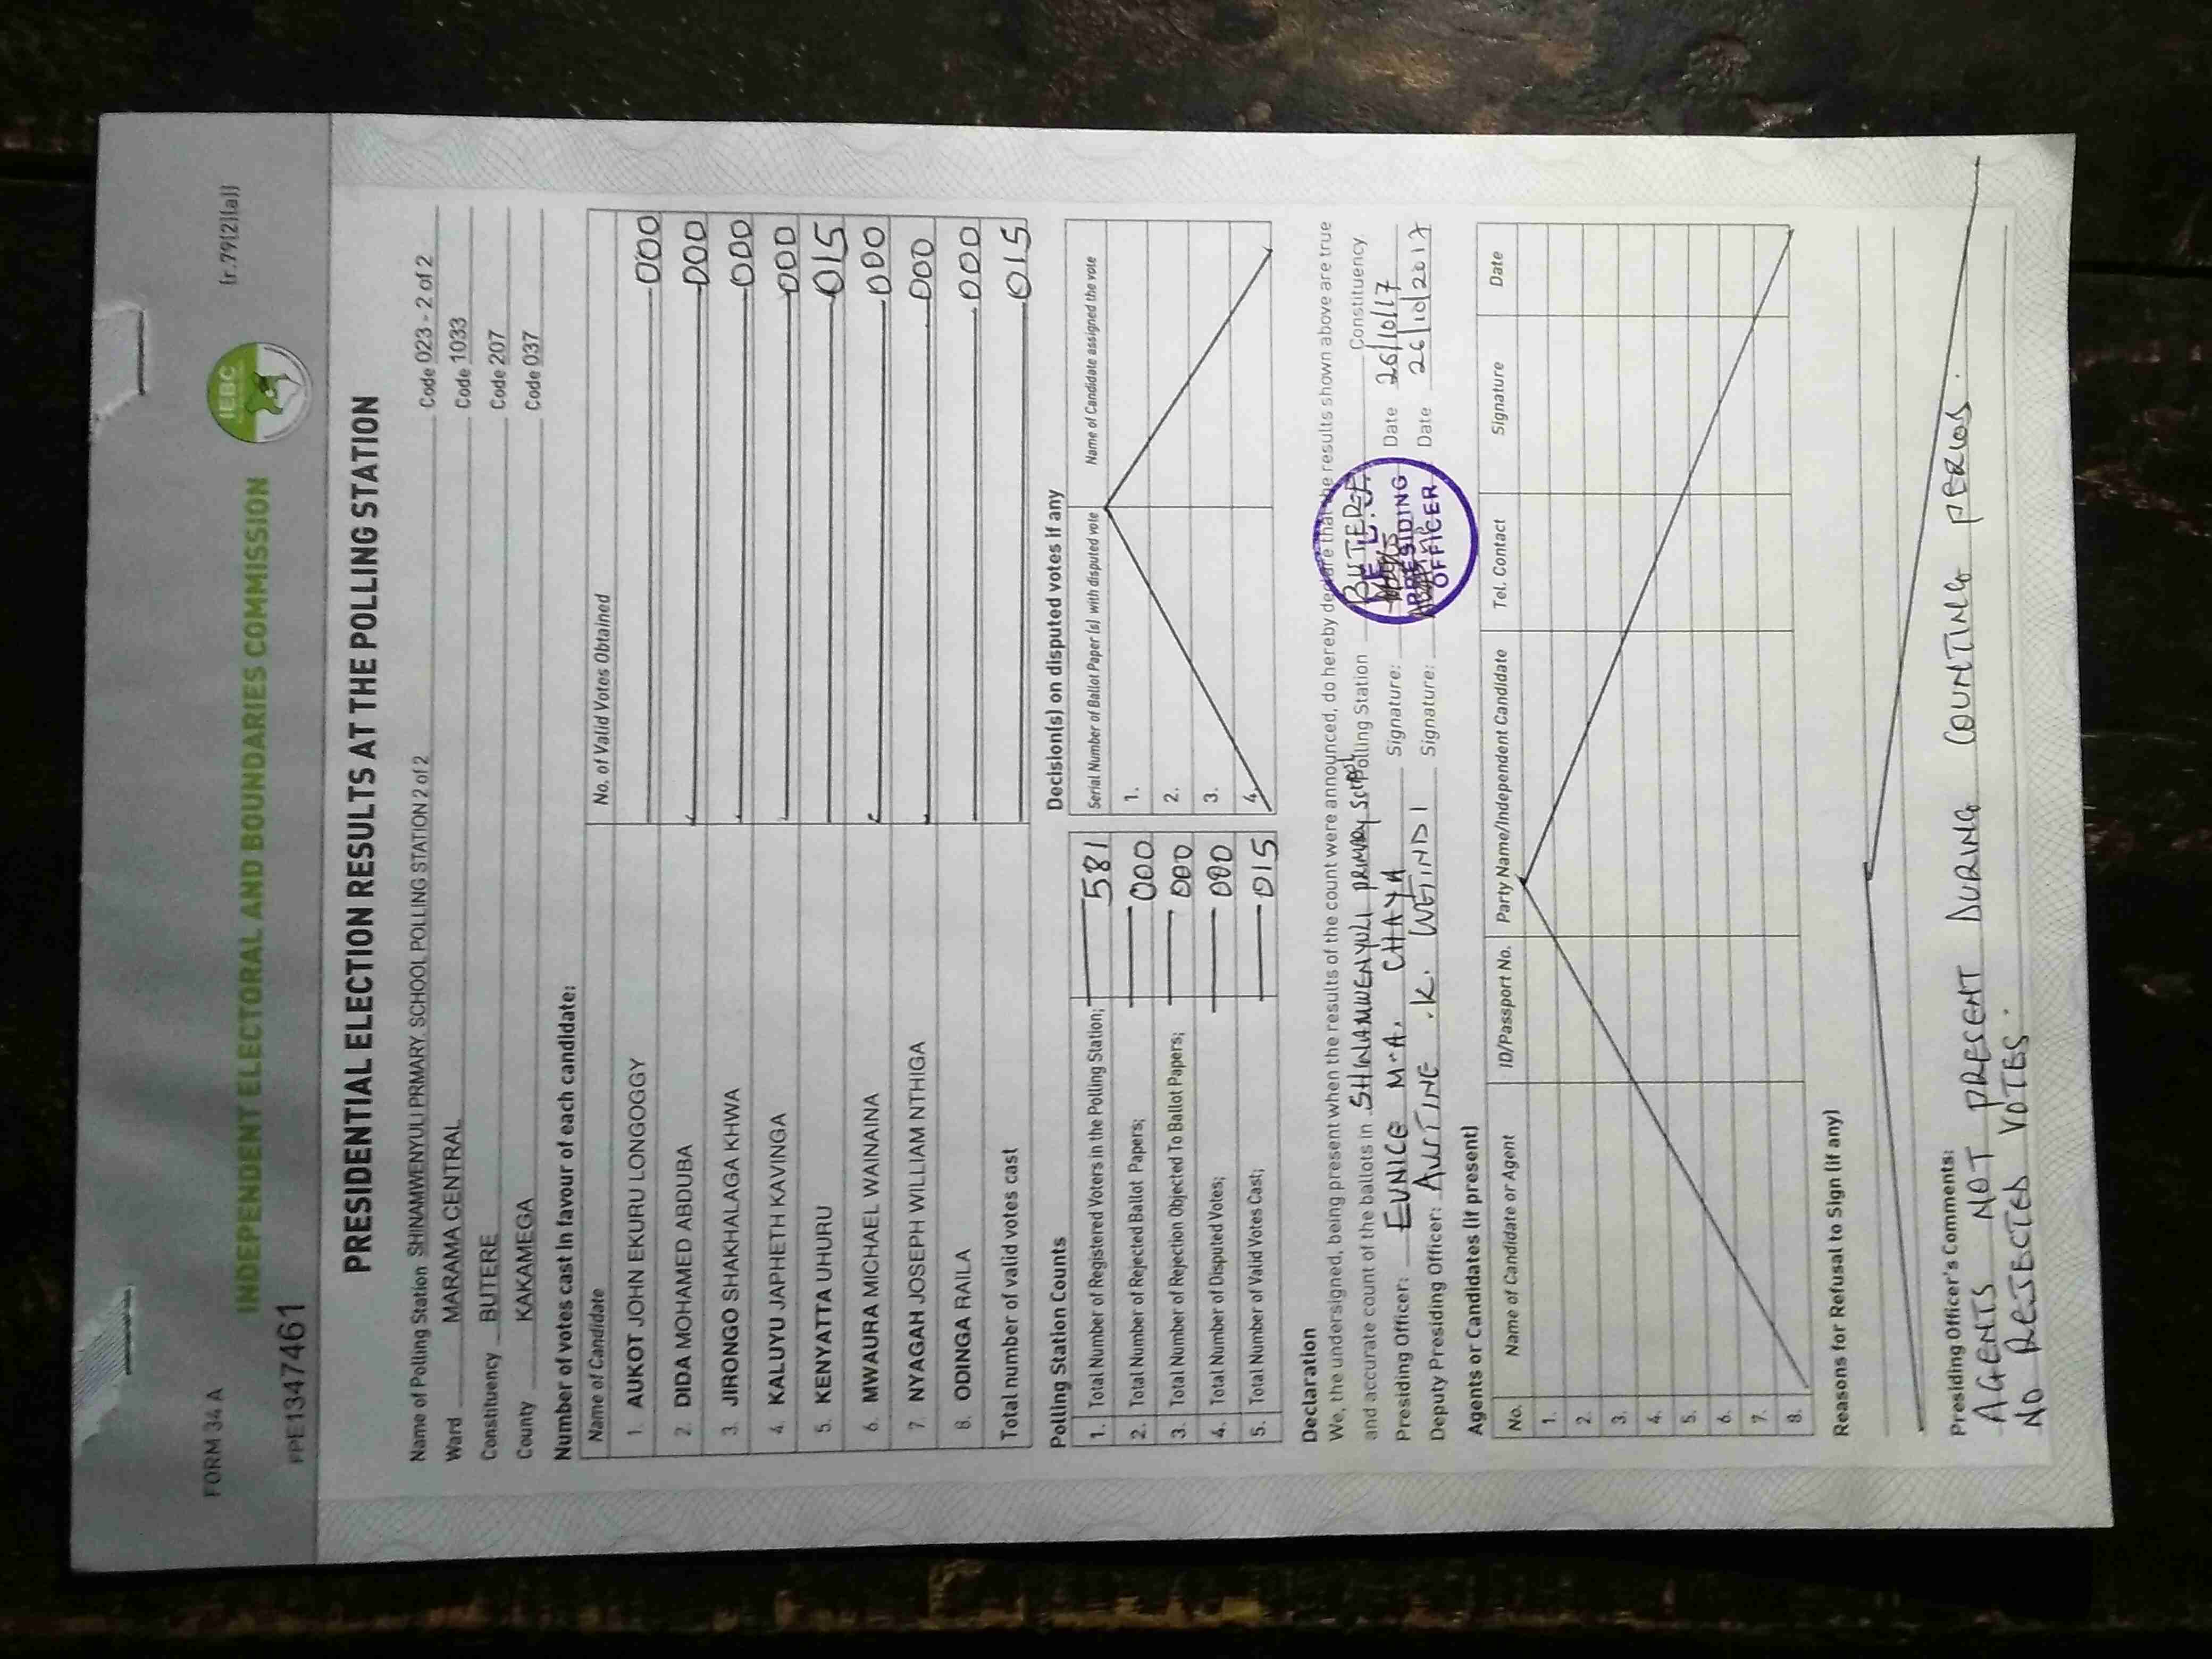 FORM 34 A
(r.79(2)(a))
IEBC
INDEPENDENT ELECTORAL AND BOUNDARIES COMMISSION
PPE1347461
PRESIDENTIAL ELECTION RESULTS AT THE POLLING STATION
Name of Polling Station SHINAMWENYULI PRMARY. SCHOOL POLLING STATION 2 of 2 Code 023 - 2 of 2
Ward MARAMA CENTRAL Code 1033
Constituency BUTERE Code 207
County KAKAMEGA Code 037
Number of votes cast in favour of each candidate:
Name of Candidate No. of Valid Votes Obtained
1. AUKOT JOHN EKURU LONGOGGY 000
2. DIDA MOHAMED ABDUBA 000
3. JIRONGO SHAKHALAGA KHWA 000
4. KALUYU JAPHETH KAVINGA 000
5. KENYATTA UHURU 015
6. MWAURA MICHAEL WAINAINA 000
7. NYAGAH JOSEPH WILLIAM NTHIGA 000
8. ODINGA RAILA 000
Total number of valid votes cast 015
Polling Station Counts
1. Total Number of Registered Voters in the Polling Station; 581
2. Total Number of Rejected Ballot Papers; 000
3. Total Number of Rejection Objected To Ballot Papers; 000
4. Total Number of Disputed Votes; 000
5. Total Number of Valid Votes Cast; 015
Decision(s) on disputed votes if any
Serial Number of Ballot Paper (s) with disputed vote Name of Candidate assigned the vote
1.
2.
3.
4.
Declaration
We, the undersigned, being present when the results of the count were announced, do hereby declare that the results shown above are true
and accurate count of the ballots in SHINAMWENYULI PRIMARY SCHOOL Polling Station BUTERE Constituency.
Presiding Officer: EUNICE M.A. CHAYA Signature: Date 26/10/17
Deputy Presiding Officer: AUSTINE .K. WEINDI Signature: Date 26/10/2017
PRESIDING
OFFICER
Agents or Candidates (if present)
No. Name of Candidate or Agent ID/Passport No. Party Name/Independent Candidate Tel. Contact Signature Date
1.
2.
3.
4.
5.
6.
7.
8.
Reasons for Refusal to Sign (if any)
Presiding Officer's Comments:
AGENTS NOT PRESENT DURING COUNTING PERIOD.
NO REJECTED VOTES.